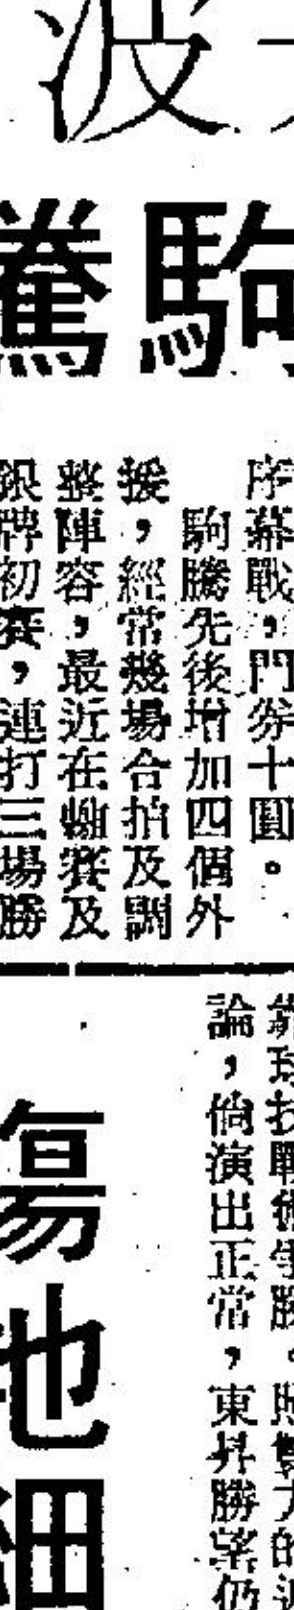 波
駒騰
序幕戰，門券十圓。
駒騰先後增加四個外
援，經常幾場合拍及調
整陣容，最近在聯賽及
銀牌初賽，連打三場勝
球技戰術爭勝。照雙方的
論，倘演出正常，東昇勝望仍
傷
地
細